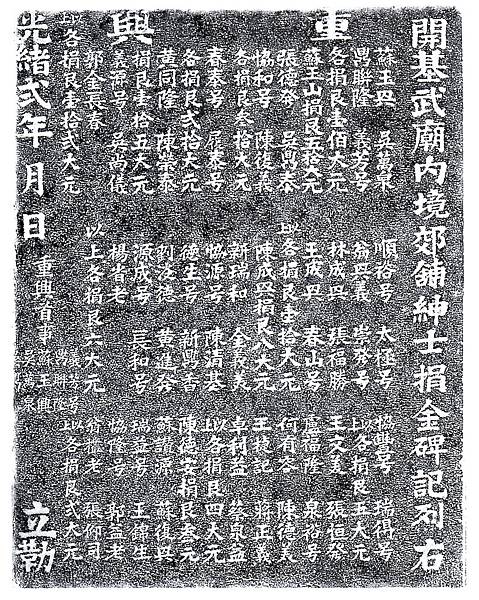 開基武廟內境郊舖紳士捐金碑記列右
重興
蘇王興 吳萬泉 順裕号 太極号 協豐号 瑞得号
聯隆 義芳号 翁興義 崇發号 以上各捐艮五大元
各捐艮壹佰大元 林成興 張福勝 王文美 張恒發
蘇王山捐艮五拾大元 王成興 春山号 盧福隆 泉裕号
張德發 吳鼎泰 以上各捐艮壹拾大元 何有答 陳德美
協和号 陳復義 陳成興捐艮八大元 王捷記 莊正義
各捐艮叁拾大元 新瑞和 金長美 卓利益 蔡泉益
春泰号 泰号 協源号 陳清基 以上各捐艮四大元
各捐艮弍拾大元 德生号 新興香 陳德安捐艮叁元
黃同隆 陳榮泰 劉泛德 黃進發 蘇讀源 蘇復興
捐艮壹拾五大元 源成号 長和号 瑞益号 王錦生
義源号 吳尚儀 楊省老 協隆号 郭益老
郭金長春 以上各捐艮六大元 翁振老 張仰司
以上各捐艮壹拾弍大元 重興省事 義芳号 聯隆 蘇王興 吳萬泉 以上各捐艮弍大元
光緒弍年 月 日 立勒